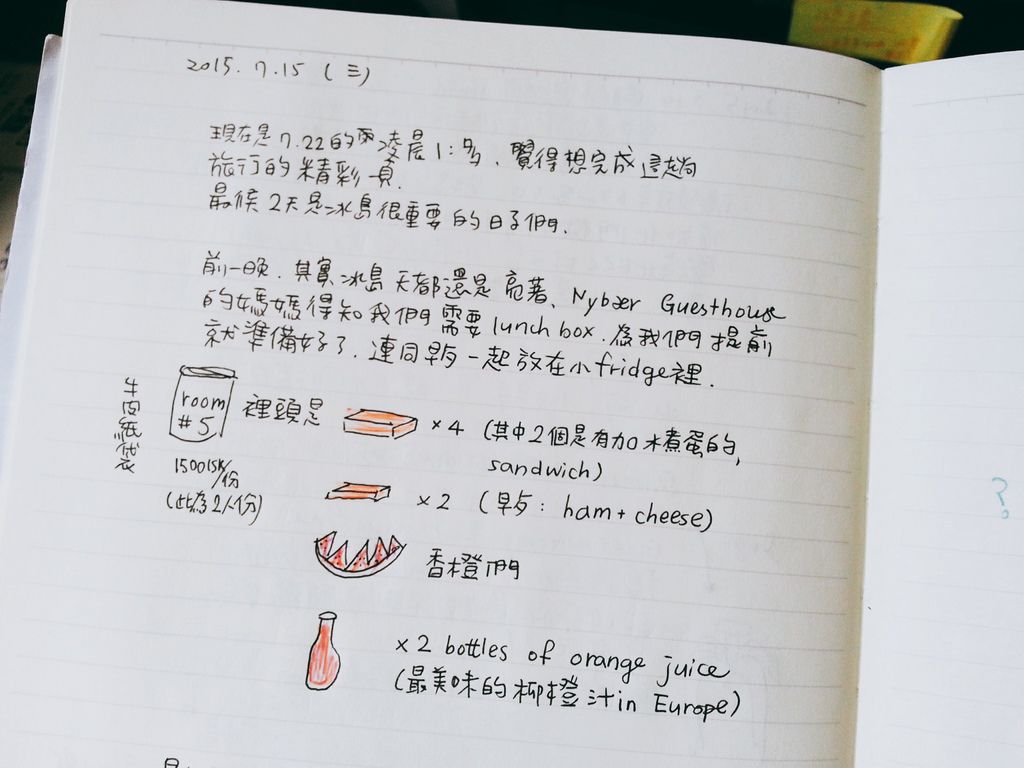 2015. 7.15 (三)
現在是 7.22 的凌晨 1:多、覺得想完成這趟
旅行的精彩頁.
最後 2天是冰島很重要的日子們.
前一晚. 其實冰島天都還是亮著、Nybær Guesthouse
的媽媽得知我們需要 lunch box. 為我們提前
就準備好了. 連同早午一起放在小 fridge 裡.
牛皮紙袋
room
#5
裡頭是
×4 (其中2個是有加水煮蛋的,
sandwich)
1500ISK/份
(此為2人份)
×2 (早午: ham + cheese)
香橙們
×2 bottles of orange juice
(最美味的柳橙汁 in Europe)
?